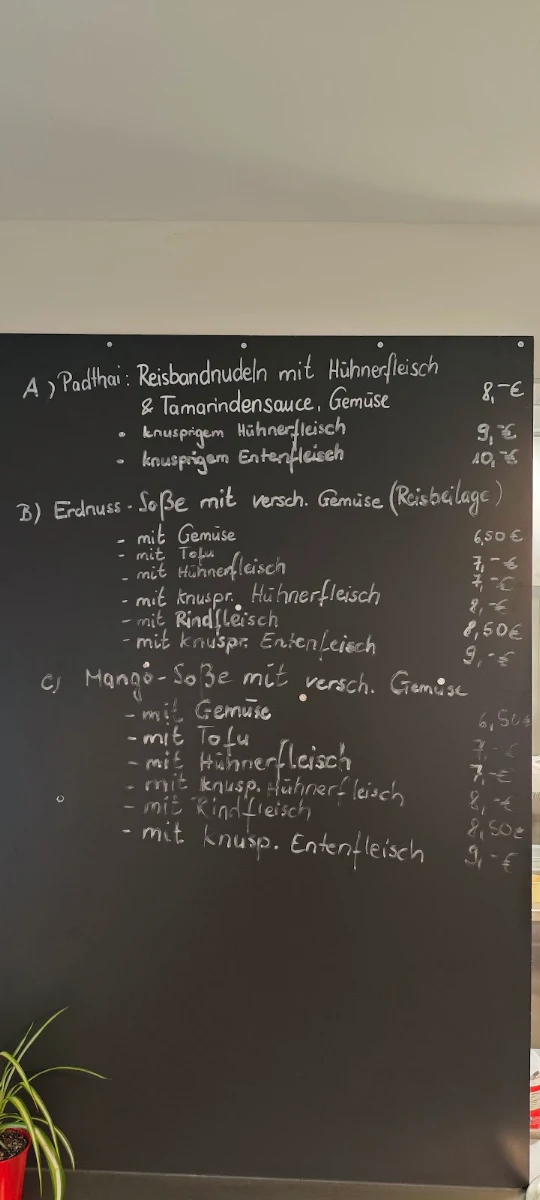 A) Padthai: Reisbandnudeln mit Hühnerfleisch
& Tamarindensauce, Gemüse 8,-€
• knusprigem Hühnerfleisch 9,-€
• knusprigem Entenfleisch 10,-€
B) Erdnuss-Soße mit versch. Gemüse (Reisbeilage)
- mit Gemüse 6,50€
- mit Tofu 7,-€
- mit Hühnerfleisch 7,-€
- mit knuspr. Hühnerfleisch 8,-€
- mit Rindfleisch 8,50€
- mit knuspr. Entenfeisch 9,-€
C) Mango-Soße mit versch. Gemüse
- mit Gemüse 6,50€
- mit Tofu 7,-€
- mit Hühnerfleisch 7,-€
- mit knusp. Hühnerfleisch 8,-€
- mit Rindfleisch 8,50€
- mit knusp. Entenfleisch 9,-€